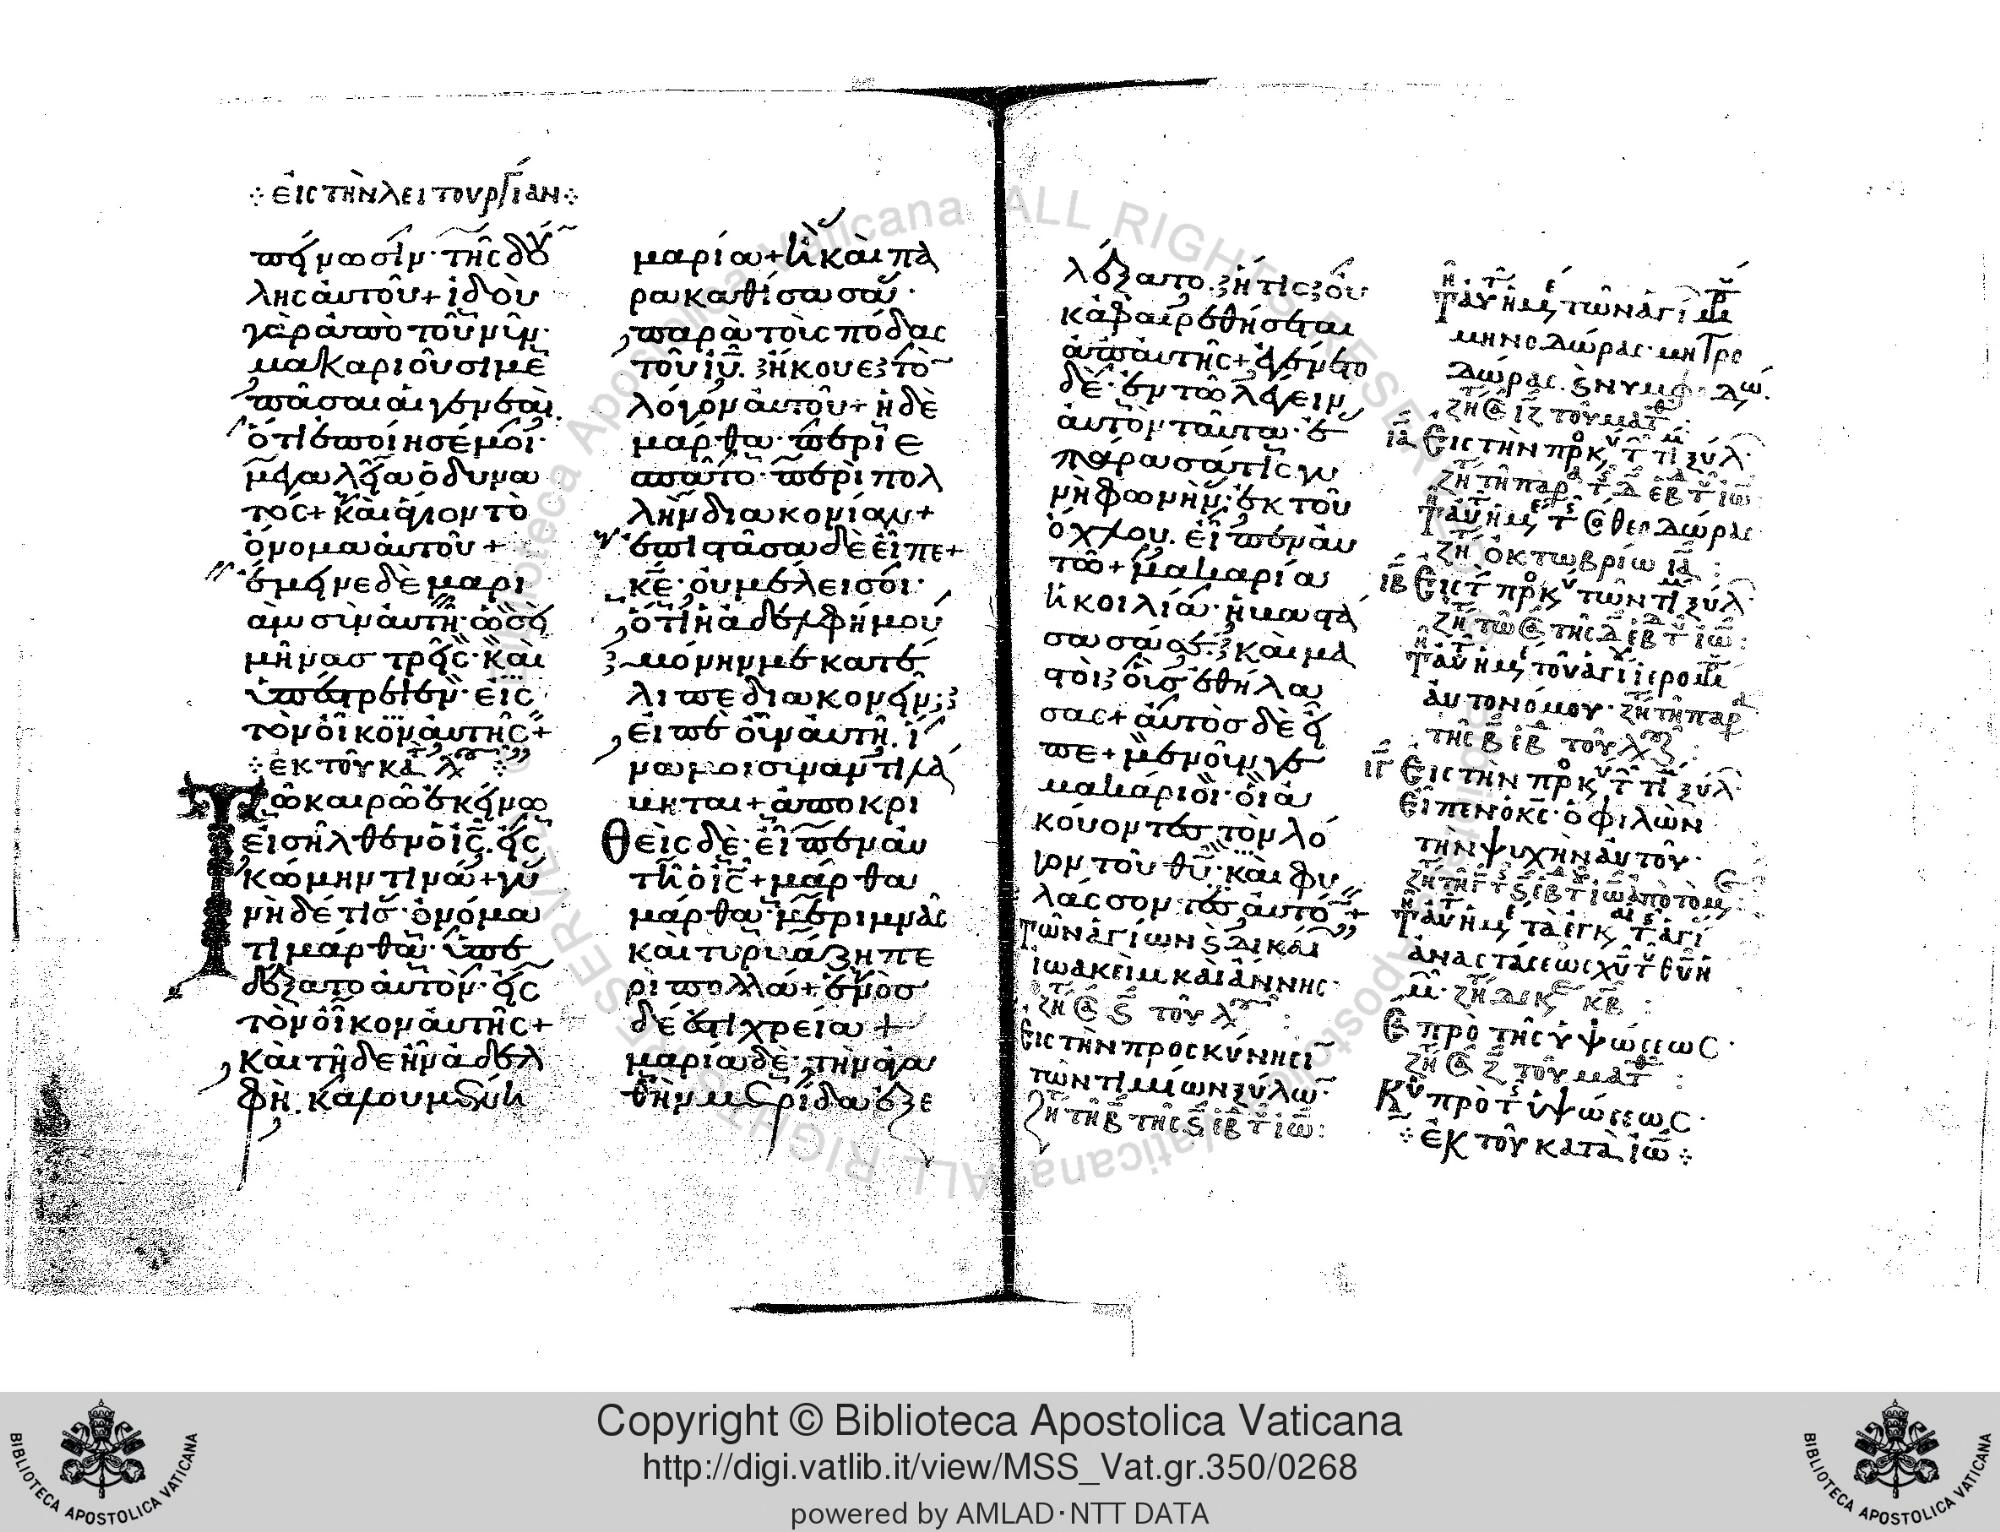 εἰς τὴν λειτουργίαν
πείνωσιν· τῆς δού
λης αὐτοῦ + ἰδοὺ
γὰρ ἀπὸ τοῦ νῦν·
μακαριοῦσί με
πᾶσαι αἱ γενεαί.
ὅτι ἐποίησέ μοι·
μεγαλεῖα ὁ δυνα
τός + καὶ ἅγιον τὸ
ὄνομα αὐτοῦ +
ἔμεινε δὲ μαρι
ὰμ σὺν αὐτῇ· ὡσεὶ
μῆνας τρεῖς· καὶ
ὑπέστρεψεν· εἰς
τὸν οἶκον αὐτῆς +
ἐκ τοῦ κατ λκ
Τῷ καιρῷ ἐκείνω
εἰσῆλθεν ὁ ις. εἰς
κώμην τινά + γυ
νὴ δέ τις· ὀνόμα
τι μάρθα· ὑπε
δέξατο αὐτόν· εἰς
τὸν οἶκον αὐτῆς +
καὶ τῆδε ἦν ἀδελ
φὴ. καλουμένη
μαρία + ἣ καὶ πα
ρακαθίσασα·
παρὰ τοὺς πόδας
τοῦ ιυ. ἤκουε τὸ
λόγον αὐτοῦ + ἡ δὲ
μάρθα· περιε
σπᾶτο· περὶ πολ
λὴν διακονίαν +
ἐπιστᾶσα δὲ εἶπε +
κε· οὐ μέλει σοι·
ὅτι ἡ ἀδελφή μου
μόνην με κατέ
λιπε διακονεῖν;
εἰπὲ οὖν αὐτῇ. ἵ
να μοι συναντιλά
βηται + ἀποκρι
Θεὶς δὲ· εἶπεν αὐ
τῆ ὁ ις + μάρθα
μάρθα· μεριμνᾶς
καὶ τυρβάζη πε
ρὶ πολλά + ἑνὸς
δέ ἐστι χρεία +
μαρία δὲ· τὴν ἀγα
θὴν μερίδα ἐξε
λέξατο. ἥτις οὐ
κ ἀφαιρεθήσεται
ἀπ' αὐτῆς + ἐγένετο
δὲ· ἐν τῶ λέγειν
αὐτὸν ταῦτα· ἐ
πάρασά τις γυ
νὴ φωνὴν· ἐκ τοῦ
ὄχλου. εἶπεν αὐ
τῶ + μακαρία
ἡ κοιλία· ἡ βαστά
σασά σε. καὶ μα
στοὶ οὓς ἐθήλα
σας + αὐτὸς δὲ εἶ
πε + μενοῦνγε
μακάριοι· οἱ ἀ
κούοντες τὸν λό
γον τοῦ θυ· καὶ φυ
λάσσοντες αὐτό +
τῶν ἁγίων ϗ δικαί
ἰωακεὶμ καὶ ἄννης·
εἰς τὴν προσκύνησι
τῶν τιμίων ξύλω·
ζη τη β της ϛ εβ τ ιω:
τῶν ἁγί
μηνοδώρας· μητρο
δώρας. ϗ νυμφοδώ.
ια Εἰς τὴν πρκ τ τι ξύλ·
ζη οκτωβρίω ια:
ιβ Εἰς τ πρκ τῶν τι ξύλ·
τοῦ ἁγί ἱερομ
αὐτονόμου· ζη τη παρ
ιγ Εἰς τὴν πρκ τ τι ξύλ·
Εἶπεν ὁ κς· ὁ φιλῶν
τὴν ψυχὴν αὐτοῦ·
ἀναστάσεως χυ τ θυ ἡ
πρὸ τῆς ὑψώσεως·
Κυ πρὸ τ ὑψώσεως·
ἐκ τοῦ κατὰ ἰω
Copyright © Biblioteca Apostolica Vaticana
http://digi.vatlib.it/view/MSS_Vat.gr.350/0268
powered by AMLAD·NTT DATA
BIBLIOTECA APOSTOLICA VATICANA
BIBLIOTECA APOSTOLICA VATICANA